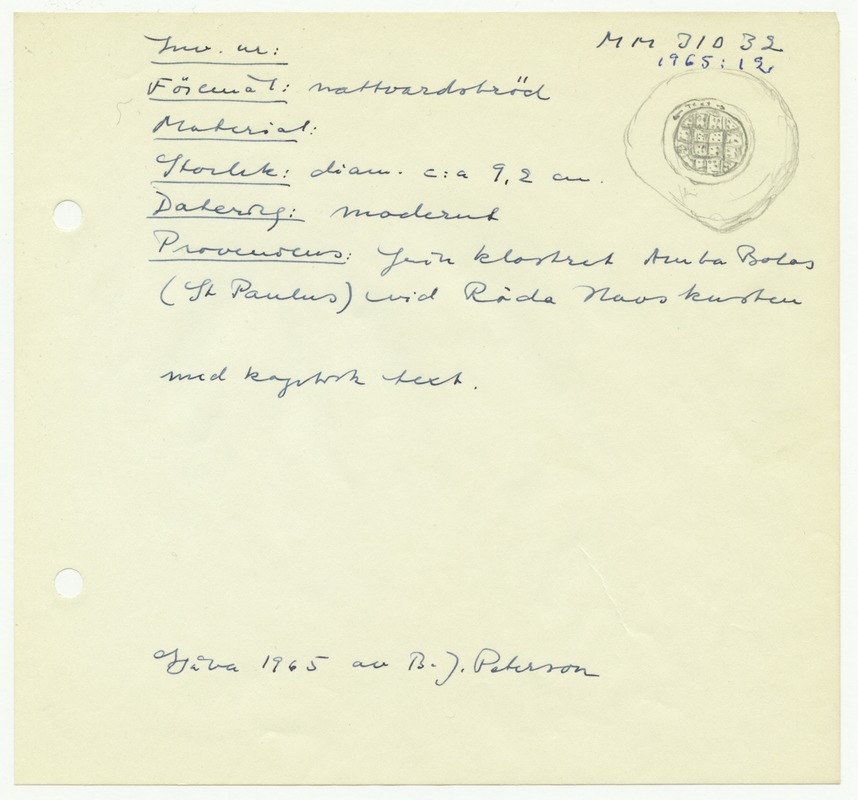 Inv. nr:
MM 31032
1965:12
Föremål: nattvardsbröd
Material:
Storlek: diam. c:a 9,2 cm.
Daterig: modernt
Proveniens: från klostret Amba Bolos
(St Paulus) vid Röda Havskusten
med koptisk text.
Gåva 1965 av B. J. Peterson